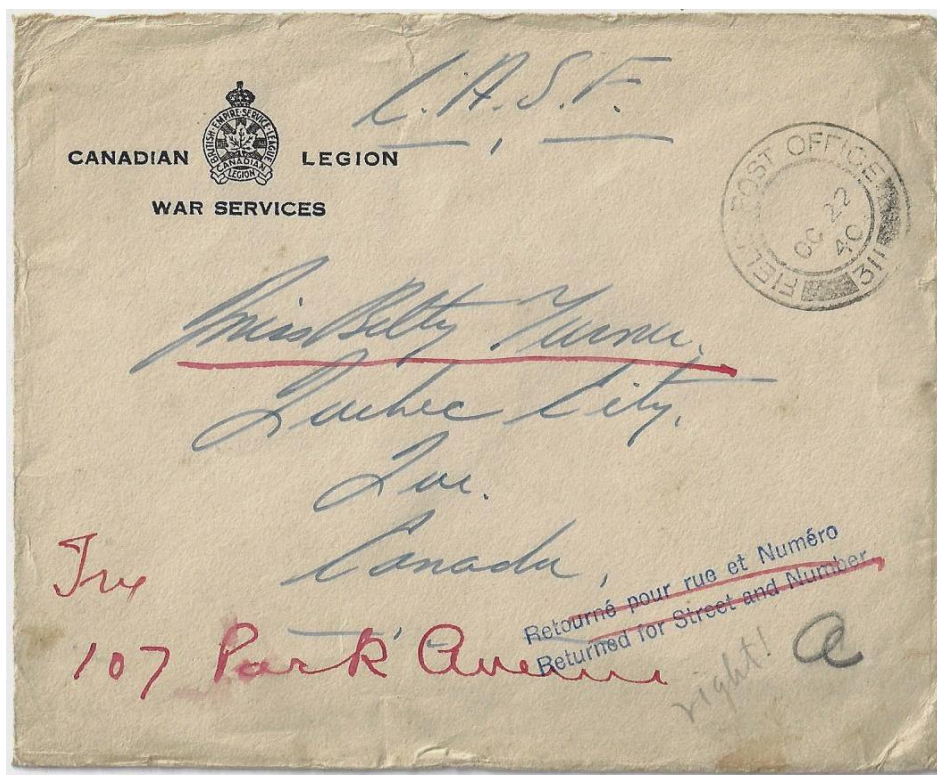 C.A.S.F.
BRITISH EMPIRE SERVICE LEAGUE
CANADIAN LEGION
CANADIAN LEGION
WAR SERVICES
FIELD POST OFFICE
OC 22
40
311
Miss Betty Turner.
Quebec City,
Que.
Canada,
Try
107 Park Avenue
Retourné pour rue et Numéro
Returned for Street and Number
right!
a